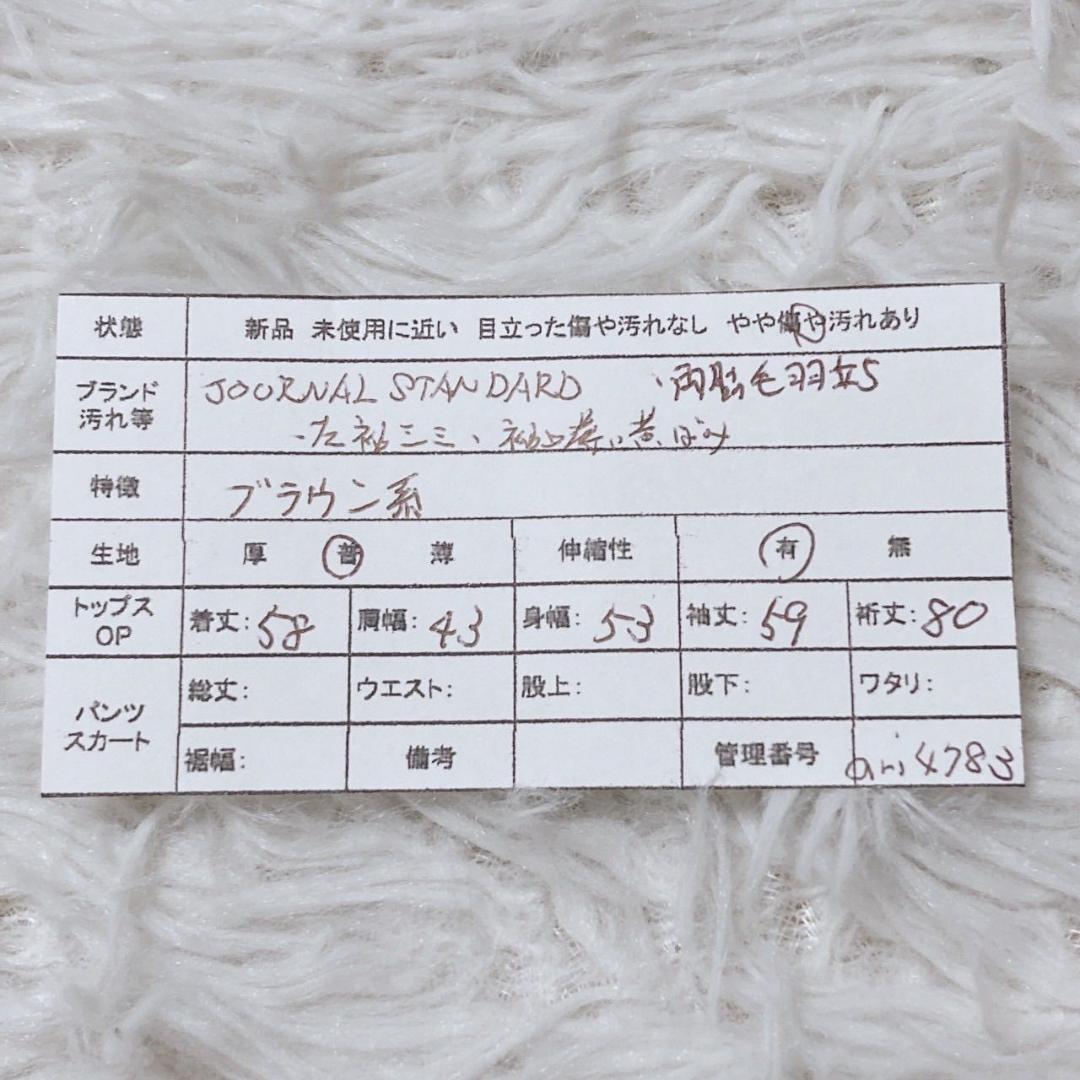 状態 新品 未使用に近い 目立った傷や汚れなし やや傷や汚れあり
ブランド 汚れ等 JOURNAL STANDARD ・両脇毛羽立ち
・左袖シミ、袖口薄い黄ばみ
特徴 ブラウン系
生地 厚 普 薄 伸縮性 有 無
トップス OP 着丈:58 肩幅:43 身幅:53 袖丈:59 裄丈:80
パンツ スカート 総丈: ウエスト: 股上: 股下: ワタリ:
裾幅: 備考 管理番号 ari4783